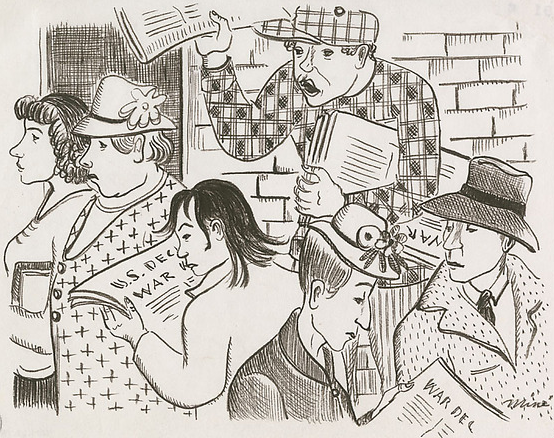 U.S. DECL
WAR
WAR
WAR DEC
Miné